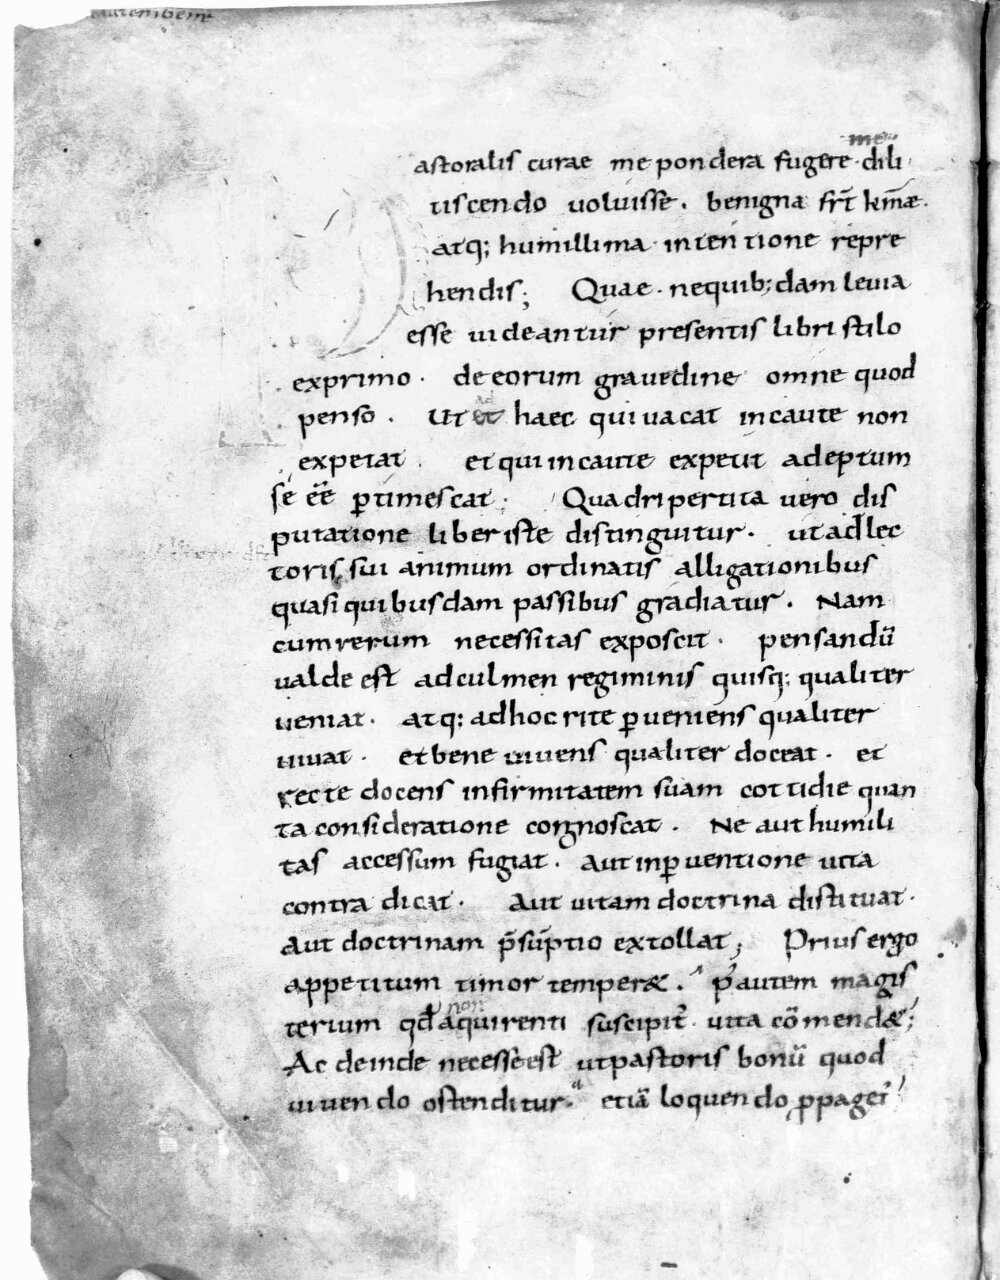 me
astoralis curae me pondera fugere dili
tiscendo uoluisse. benigna frt̄ km̄ae.
atq; humillima intentione repre
hendis; Quae. nequib;dam leuia
esse uideantur presentis libri stilo
exprimo. de eorum grauedine omne quod
penso. Ut et haec qui uacat incaute non
expetat. et qui incaute expetit adeptum
sé ēē ꝑtimescat; Quadripertita uero dis
putatione liber iste distinguitur. ut ad lec
toris sui animum ordinatis alligationibus
quasi quibusdam passibus gradiatur. Nam
cum rerum necessitas exposcit. pensandū
ualde est ad culmen regiminis quisq; qualiter
ueniat. atq; ad hoc rite ꝑueniens qualiter
uiuat. et bene uiuens qualiter doceat. et
recte docens infirmitatem suam cottidie quan
ta consideratione cognoscat. Ne aut humili
tas accessum fugiat. aut inꝑuentione uita
contradicat. Aut uitam doctrina distituat.
aut doctrinam p̄sūptio extollat; Prius ergo
appetitum timor temperæ. p̄ autem magis
non
terium qđ aquirenti suscipit̄. uita cōmendæ;
Ac deinde necesse est ut pastoris bonū quod
uiuendo ostenditur. etiā loquendo ꝓpaget̄